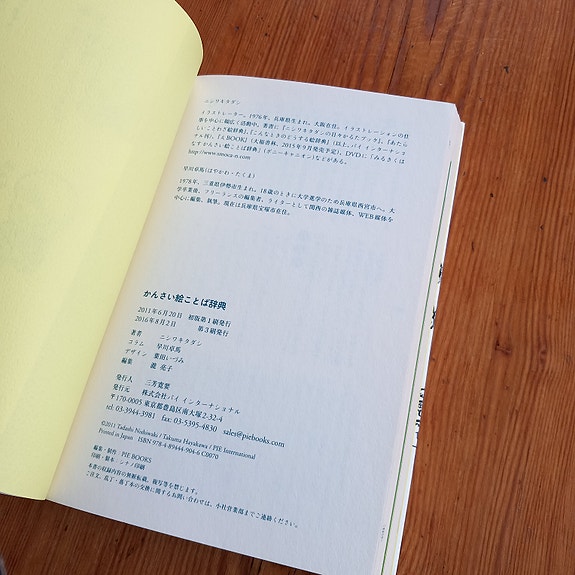 ニシワキタダシ
イラストレーター。1976年、兵庫県生まれ、大阪在住。イラストレーションの仕
事を中心に幅広く活動中。著書に『ニシワキタダシの日々かるたブック』、『あたら
しいことわざ絵辞典』、『こんなときのどうする絵辞典』(以上、パイ インターナショ
ナル刊)、『えBOOK』(大福書林、2015年9月発売予定)、DVDに『みるきくは
なす かんさい絵ことば辞典』(デニーキャニオン)などがある。
http://www.smoca-n.com
早川卓馬(はやかわ・たくま)
1978年、三重県伊勢市生まれ。18歳のときに大学進学のため兵庫県西宮市へ。大
学卒業後、フリーランスの編集者、ライターとして関西の雑誌媒体、WEB媒体を
中心に編集、執筆。現在は兵庫県宝塚市在住。
かんさい絵ことば辞典
2011年6月20日 初版第1刷発行
2016年8月2日 第3刷発行
著者 ニシワキタダシ
コラム 早川卓馬
デザイン 葉田いづみ
編集 瀧 亮子
発行人 三芳寛要
発行元 株式会社パイ インターナショナル
〒170-0005 東京都豊島区南大塚2-32-4
tel 03-3944-3981 fax 03-5395-4830 sales@piebooks.com
©2011 Tadashi Nishiwaki / Takuma Hayakawa / PIE International
Printed in Japan ISBN 978-4-89444-904-6 C0070
編集・制作 PIE BOOKS
印刷・製本・シナノ印刷
本書の収録内容の無断転載、複写等を禁じます。
ご注文、乱丁・落丁本の交換に関するお問い合わせは、小社営業部までご連絡ください。